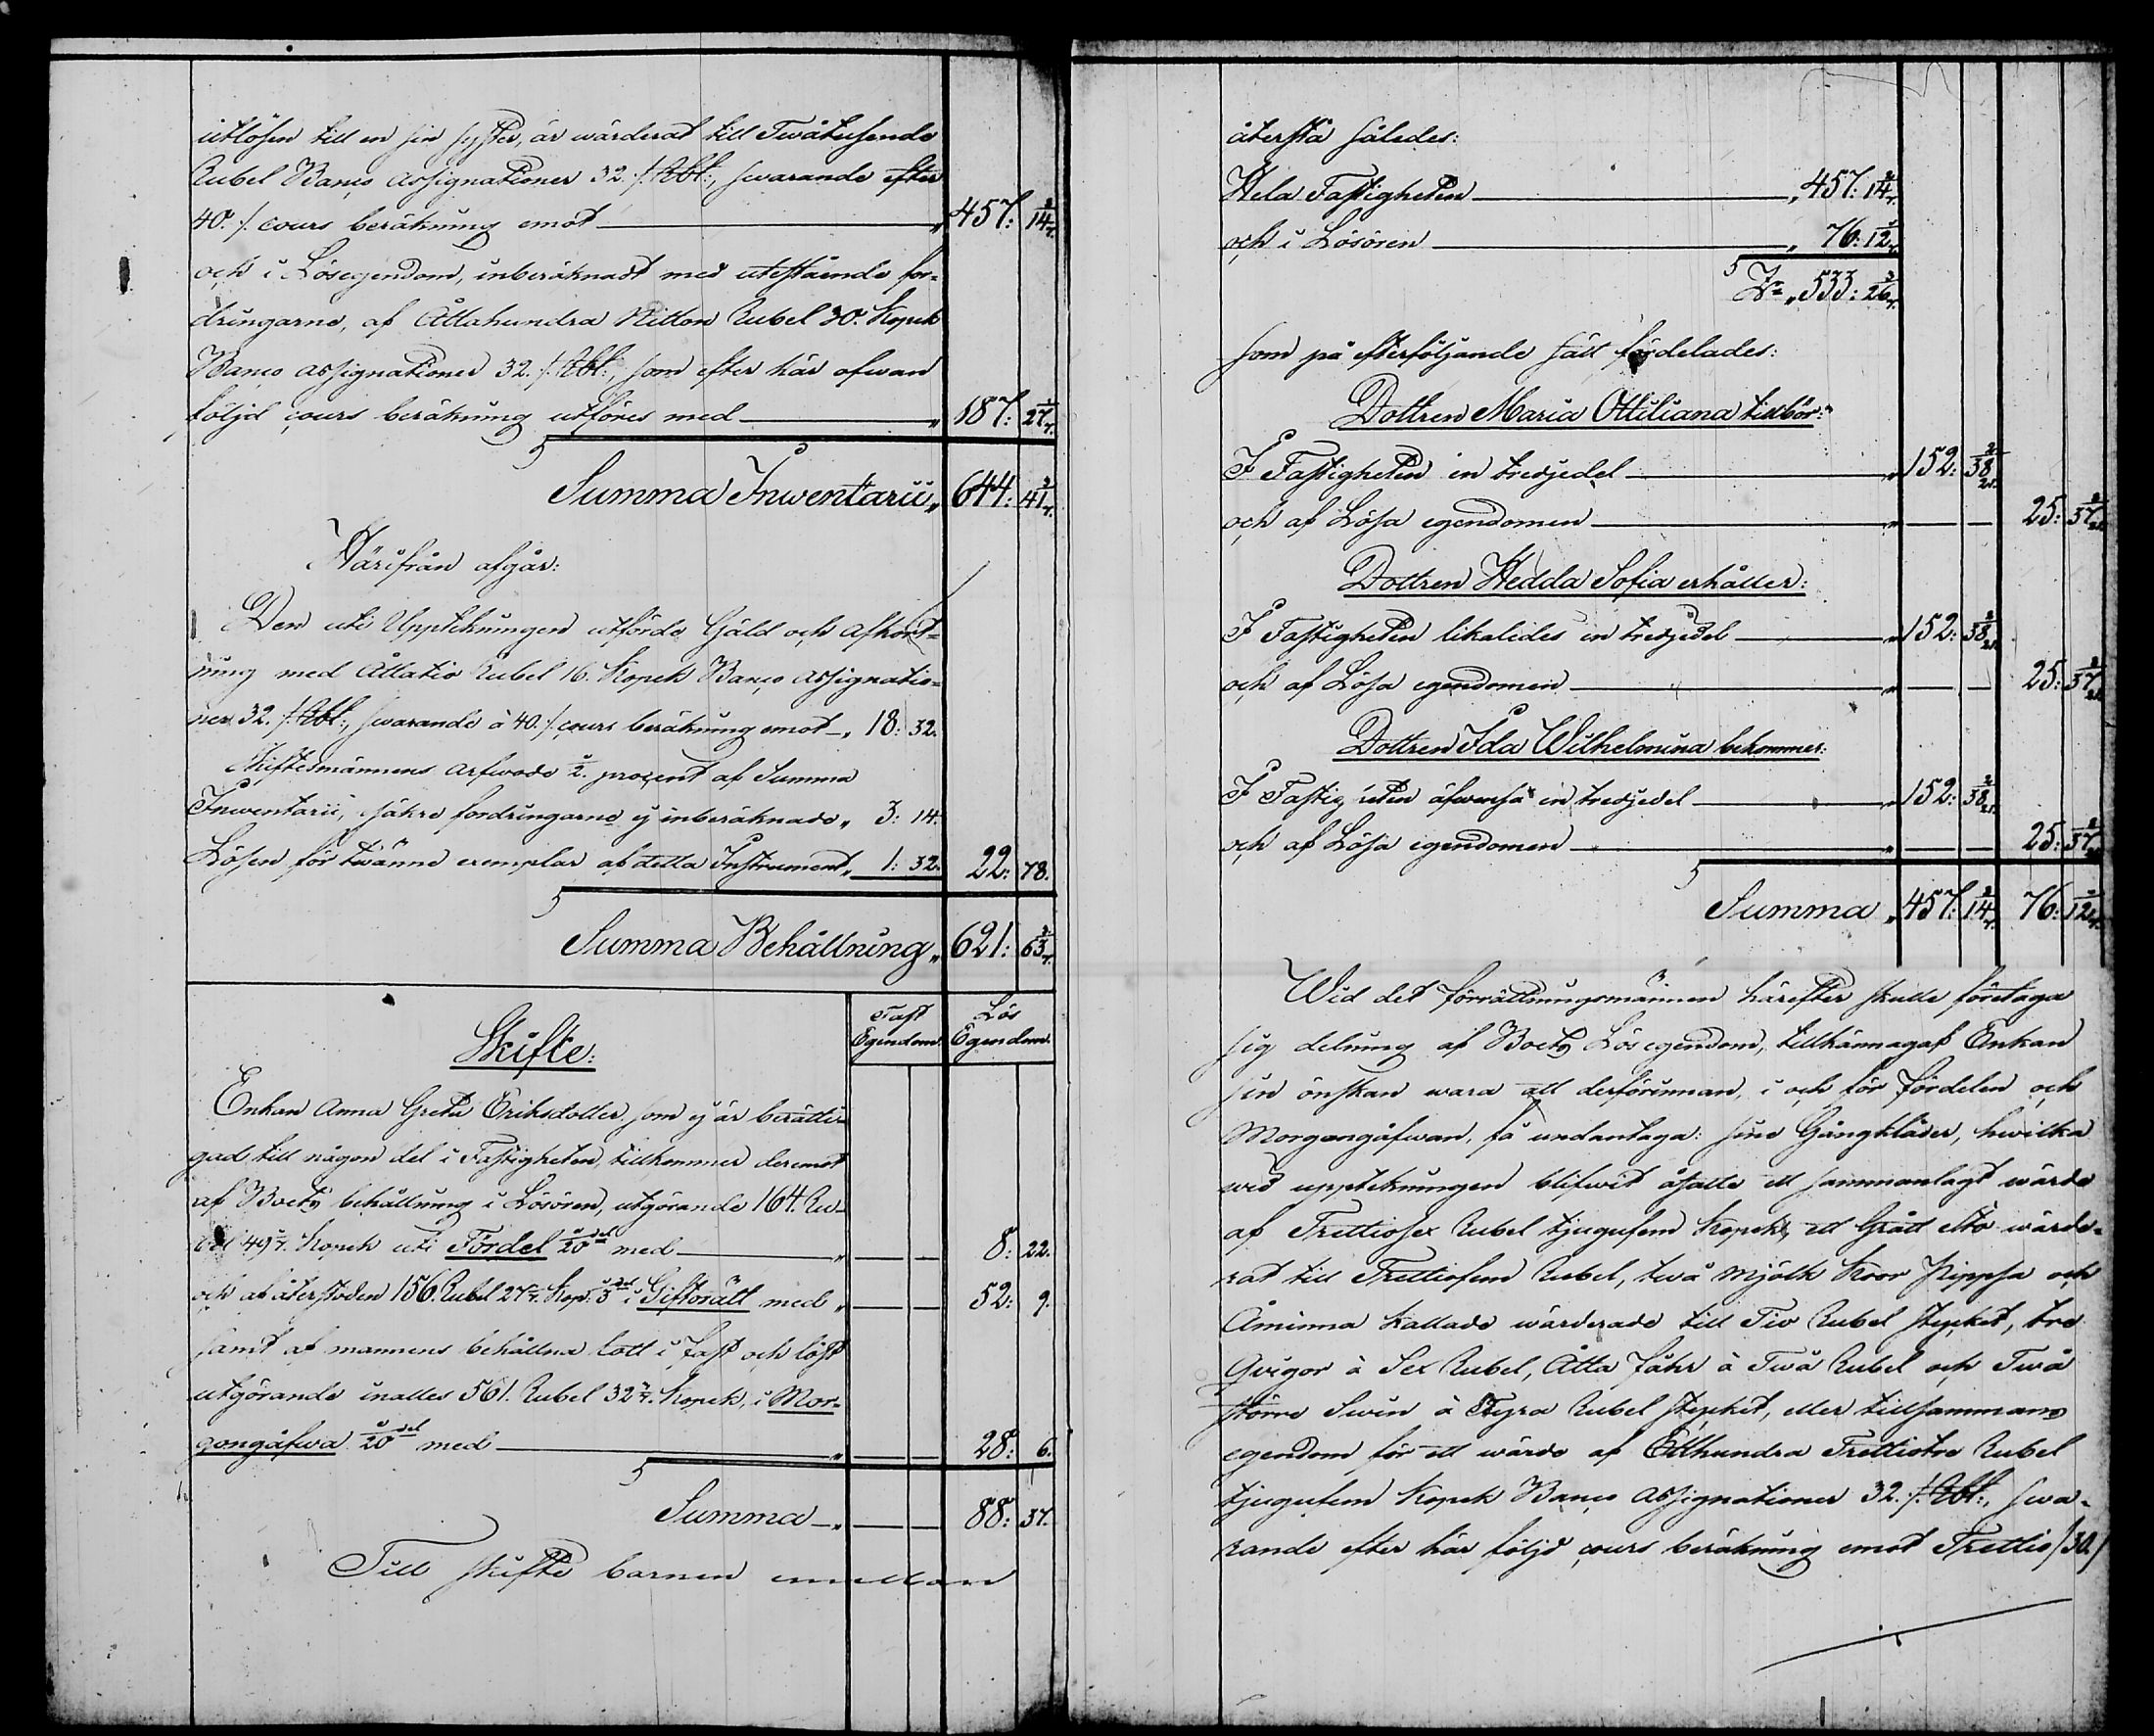 utlösen till en sin syster, är wärderat till Twåtusende
Rubel Banco Assignationer 32. /. Rbl:, swarande efter
40. /. cours beräkning emot „ 457: 14 2/7.
och i Lösegendom, inberäknadt med utestående for-
dringarne, af Åttahundra Nitton Rubel 30. Kopek
Banco Assignationer 32. /. Rbl:, som efter här ofwan
följd cours beräkning utföres med „ 187: 27 1/7.
Summa Inwentarii „ 644: 41 3/7.
Härifrån afgår:
Den uti Upptekningen utförde Gäld och afkort-
ning med Åttatio Rubel 16. Kopek Banco Assignatio-
ner 32. /. Rbl:, swarande à 40. /. cours beräkning emot „ 18: 32.
Skiftesmännens arfwode 1/2. procent af Summa
Inwentarii, osäkre fordringarne ej inberäknade „ 3: 14.
Lösen för twänne exemplar af detta Instrument „ 1: 32. 22: 78.
Summa Behållning „ 621: 63 3/7.
Fast Egendom. Lös Egendom.
Skifte:
Enkan Anna Greta Eriksdotter, som ej är berätti-
gad till någon del i Fastigheten, tillkommer deremot
af Boets behållning i Lösören, utgörande 164. Ru-
bel 49 1/7. Kopek uti Fördel 1/20 del med „ — — 8: 22.
och af återstoden 156. Rubel 27 1/7. Kop: 1/3 del i Giftorätt med „ — — 52: 9.
samt af mannens behållna lott i fast och löst
utgörande inalles 561. Rubel 32 3/7. Kopek, i Mor-
gongåfwa 1/20 del med „ — — 28: 6.
Summa „ — — 88: 37.
Till skifte barnen emellan
återstå således:
Hela Fastigheten „ 457: 14 2/7.
och i Lösören „ 76: 12 1/7.
Sa „ 533: 26 3/7.
som på efterföljande sätt fördelades:
Dottren Maria Ottiliana tillhör:
I Fastigheten en tredjedel „ 152: 38 2/21.
och af Lösa egendomen „ — — 25: 37 1/21.
Dottren Hedda Sofia erhåller:
I Fastigheten likaledes en tredjedel „ 152: 38 2/21.
och af Lösa egendomen „ — — 25: 37 1/21.
Dottren Ida Wilhelmina bekommer:
I Fastigheten äfwenså en tredjedel „ 152: 38 2/21.
och af Lösa egendomen „ — — 25: 37 1/21.
Summa „ 457: 14 2/7. 76: 12 1/7.
Wid det förrättningsmännen härefter skulle företaga
sig delning af Boets Lösegendom, tillkännagaf Enkan
sin önskan wara att derförinnan, i och för fördelen och
Morgongåfwan, få undantaga: sine Gångkläder, hwilka
wid upptekningen blifwit åsatte ett sammanlagt wärde
af Trettiosex Rubel tjugufem Kopek, ett Grått Sto wärde-
rat till Trettiofem Rubel, twå mjölk Koor Pippsa och
Åminna kallade wärderade till Tio Rubel stycket, tre
Qvigor à Sex Rubel, Åtta Fåhr à Twå Rubel och Twå
större Swin à Fyra Rubel stycket, eller tillsammans
egendom för ett wärde af Etthundra Trettiotre Rubel
tjugufem Kopek Banco Assignationer 32. /. Rbl:, swa-
rande efter här följd cours beräkning emot Trettio /30./